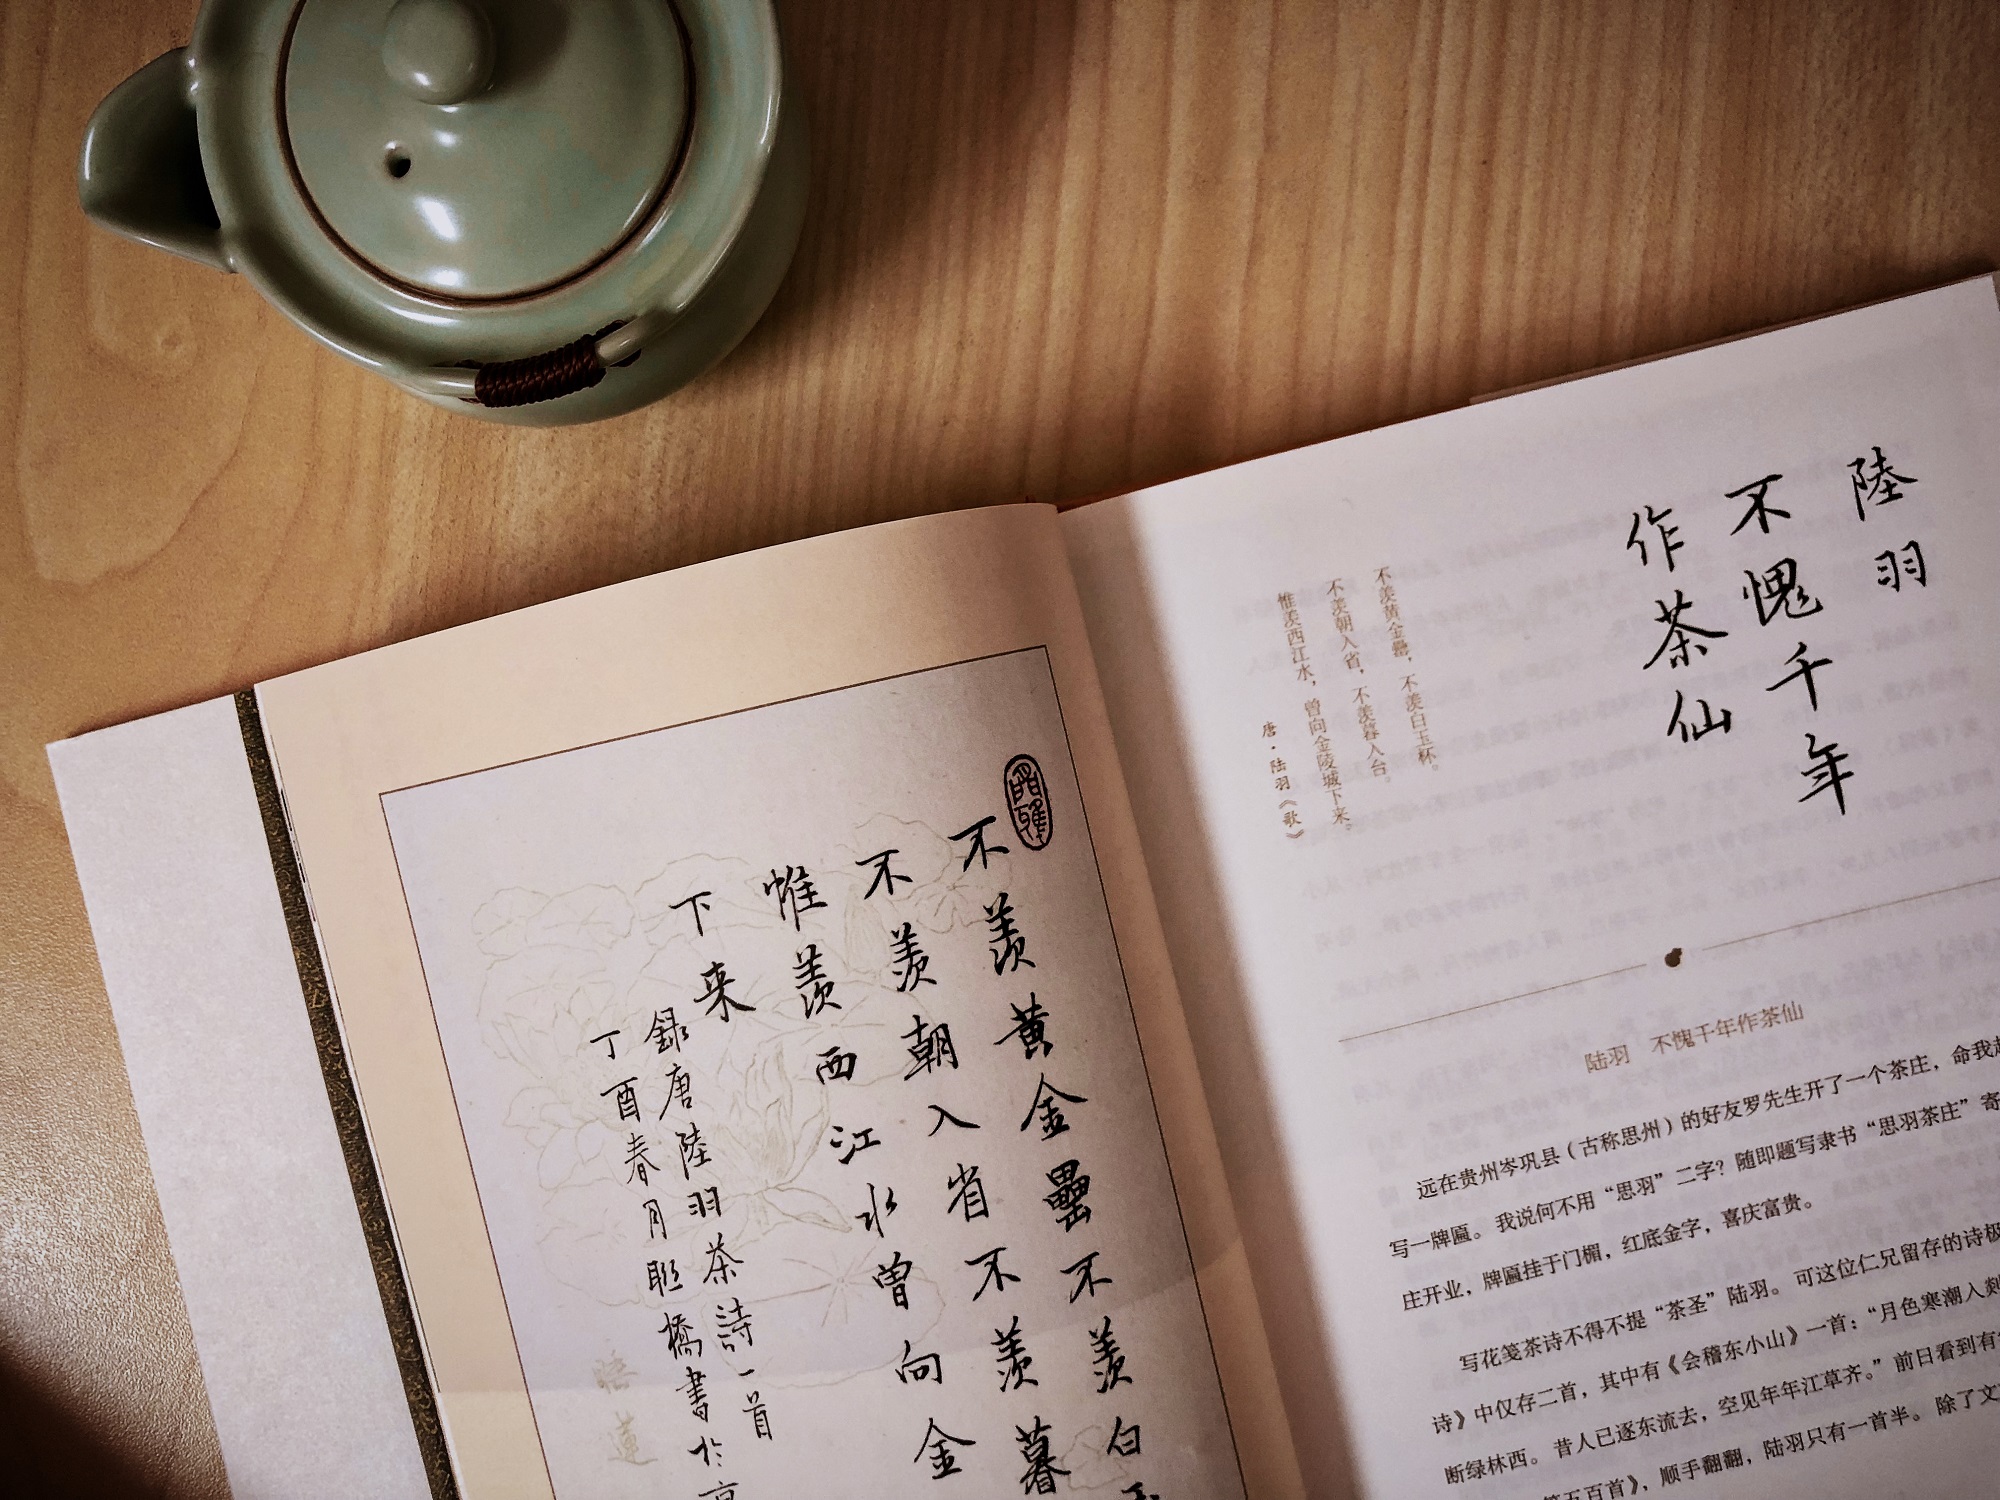 不羡黄金罍不羡白玉
不羡朝入省不羡暮
惟羡西江水曾向金
下来
録唐陸羽茶詩一首
丁酉春月聪橋書於京
悟蓮
陸羽
不愧千年
作茶仙
不羡黄金罍，不羡白玉杯。
不羡朝入省，不羡暮入台。
惟羡西江水，曾向金陵城下来。
唐·陆羽《歌》
陆羽 不愧千年作茶仙
远在贵州岑巩县（古称思州）的好友罗先生开了一个茶庄，命我起
写一牌匾。我说何不用“思羽”二字？随即题写隶书“思羽茶庄”寄
庄开业，牌匾挂于门楣，红底金字，喜庆富贵。
写花笺茶诗不得不提“茶圣”陆羽。可这位仁兄留存的诗极
诗》中仅存二首，其中有《会稽东小山》一首：“月色寒潮入剡
断绿林西。昔人已逐东流去，空见年年江草齐。”前日看到有
第五百首》，顺手翻翻，陆羽只有一首半。除了文